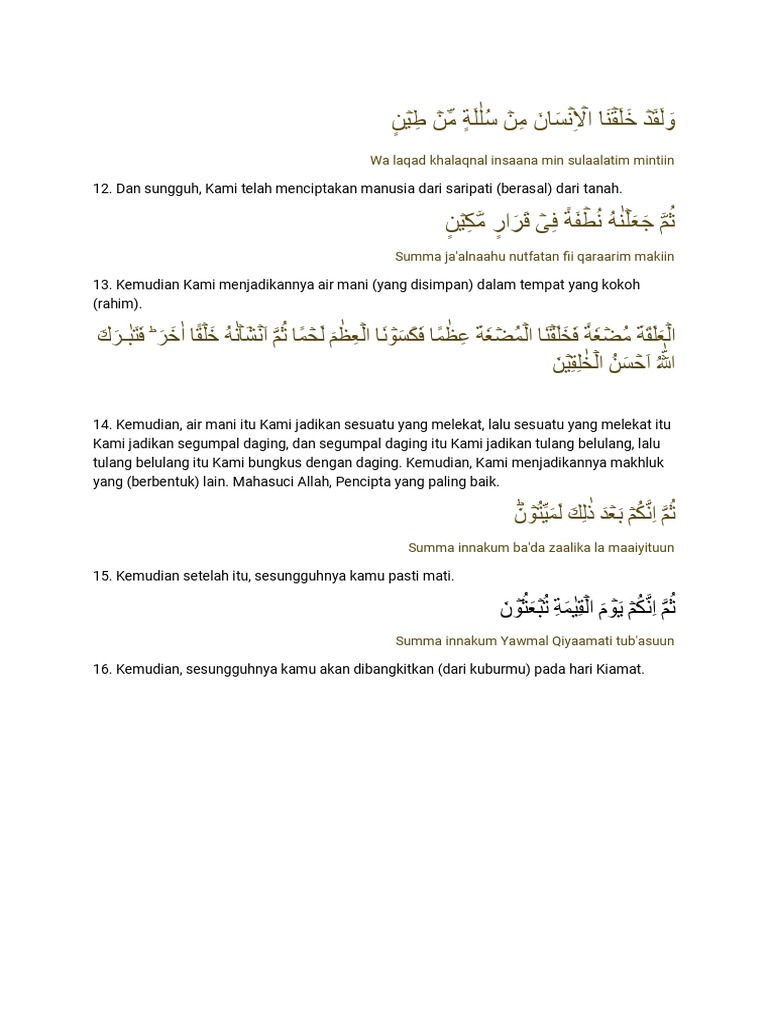 وَلَقَدۡ خَلَقۡنَا الۡاِنۡسَانَ مِنۡ سُلٰلَةٍ مِّنۡ طِيۡنٍ‌
Wa laqad khalaqnal insaana min sulaalatim mintiin
12. Dan sungguh, Kami telah menciptakan manusia dari saripati (berasal) dari tanah.
ثُمَّ جَعَلۡنٰهُ نُطۡفَةً فِىۡ قَرَارٍ مَّكِيۡنٍ
Summa ja'alnaahu nutfatan fii qaraarim makiin
13. Kemudian Kami menjadikannya air mani (yang disimpan) dalam tempat yang kokoh
(rahim).
الۡعَلَقَةَ مُضۡغَةً فَخَلَقۡنَا الۡمُضۡغَةَ عِظٰمًا فَكَسَوۡنَا الۡعِظٰمَ لَحۡمًا ثُمَّ اَنۡشَاۡنٰهُ خَلۡقًا اٰخَرَ‌ ؕ فَتَبٰـرَكَ
اللّٰهُ اَحۡسَنُ الۡخٰلِقِيۡنَ
14. Kemudian, air mani itu Kami jadikan sesuatu yang melekat, lalu sesuatu yang melekat itu
Kami jadikan segumpal daging, dan segumpal daging itu Kami jadikan tulang belulang, lalu
tulang belulang itu Kami bungkus dengan daging. Kemudian, Kami menjadikannya makhluk
yang (berbentuk) lain. Mahasuci Allah, Pencipta yang paling baik.
ثُمَّ اِنَّكُمۡ بَعۡدَ ذٰلِكَ لَمَيِّتُوۡنَؕ
Summa innakum ba'da zaalika la maaiyituun
15. Kemudian setelah itu, sesungguhnya kamu pasti mati.
ثُمَّ اِنَّكُمۡ يَوۡمَ الۡقِيٰمَةِ تُبۡعَثُوۡنَ
Summa innakum Yawmal Qiyaamati tub'asuun
16. Kemudian, sesungguhnya kamu akan dibangkitkan (dari kuburmu) pada hari Kiamat.